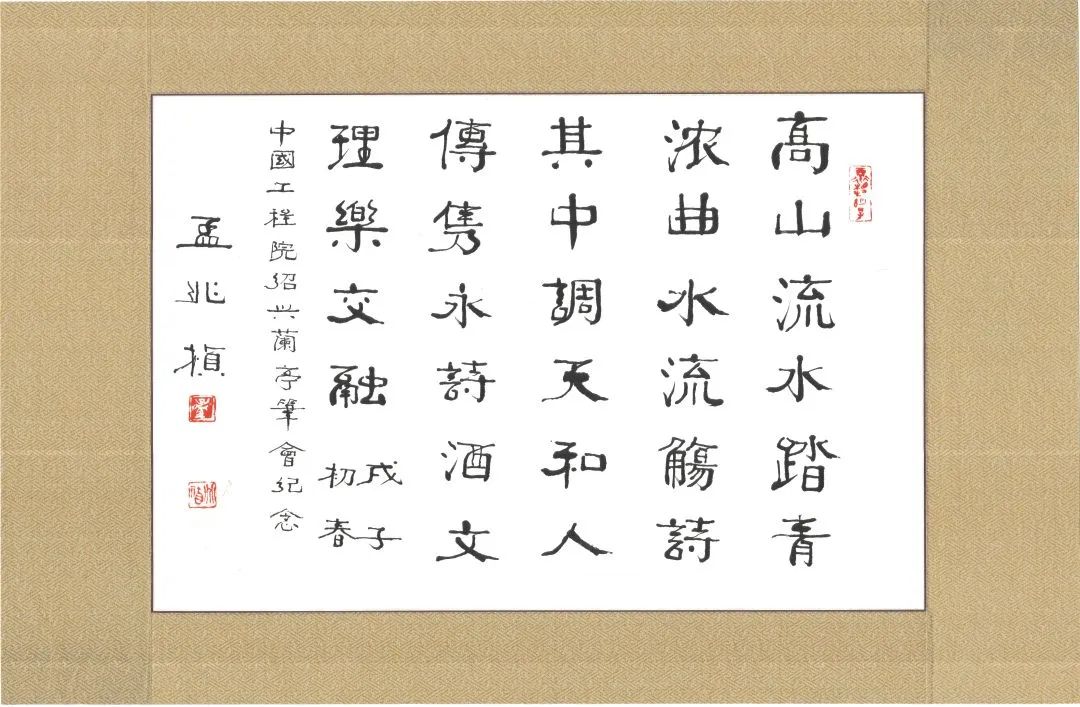 高山流水踏青
浓曲水流觴詩
其中調天和人
傳雋永詩酒文
理樂交融
戊子
初春
中國工程院紹興蘭亭筆會紀念
孟兆禎